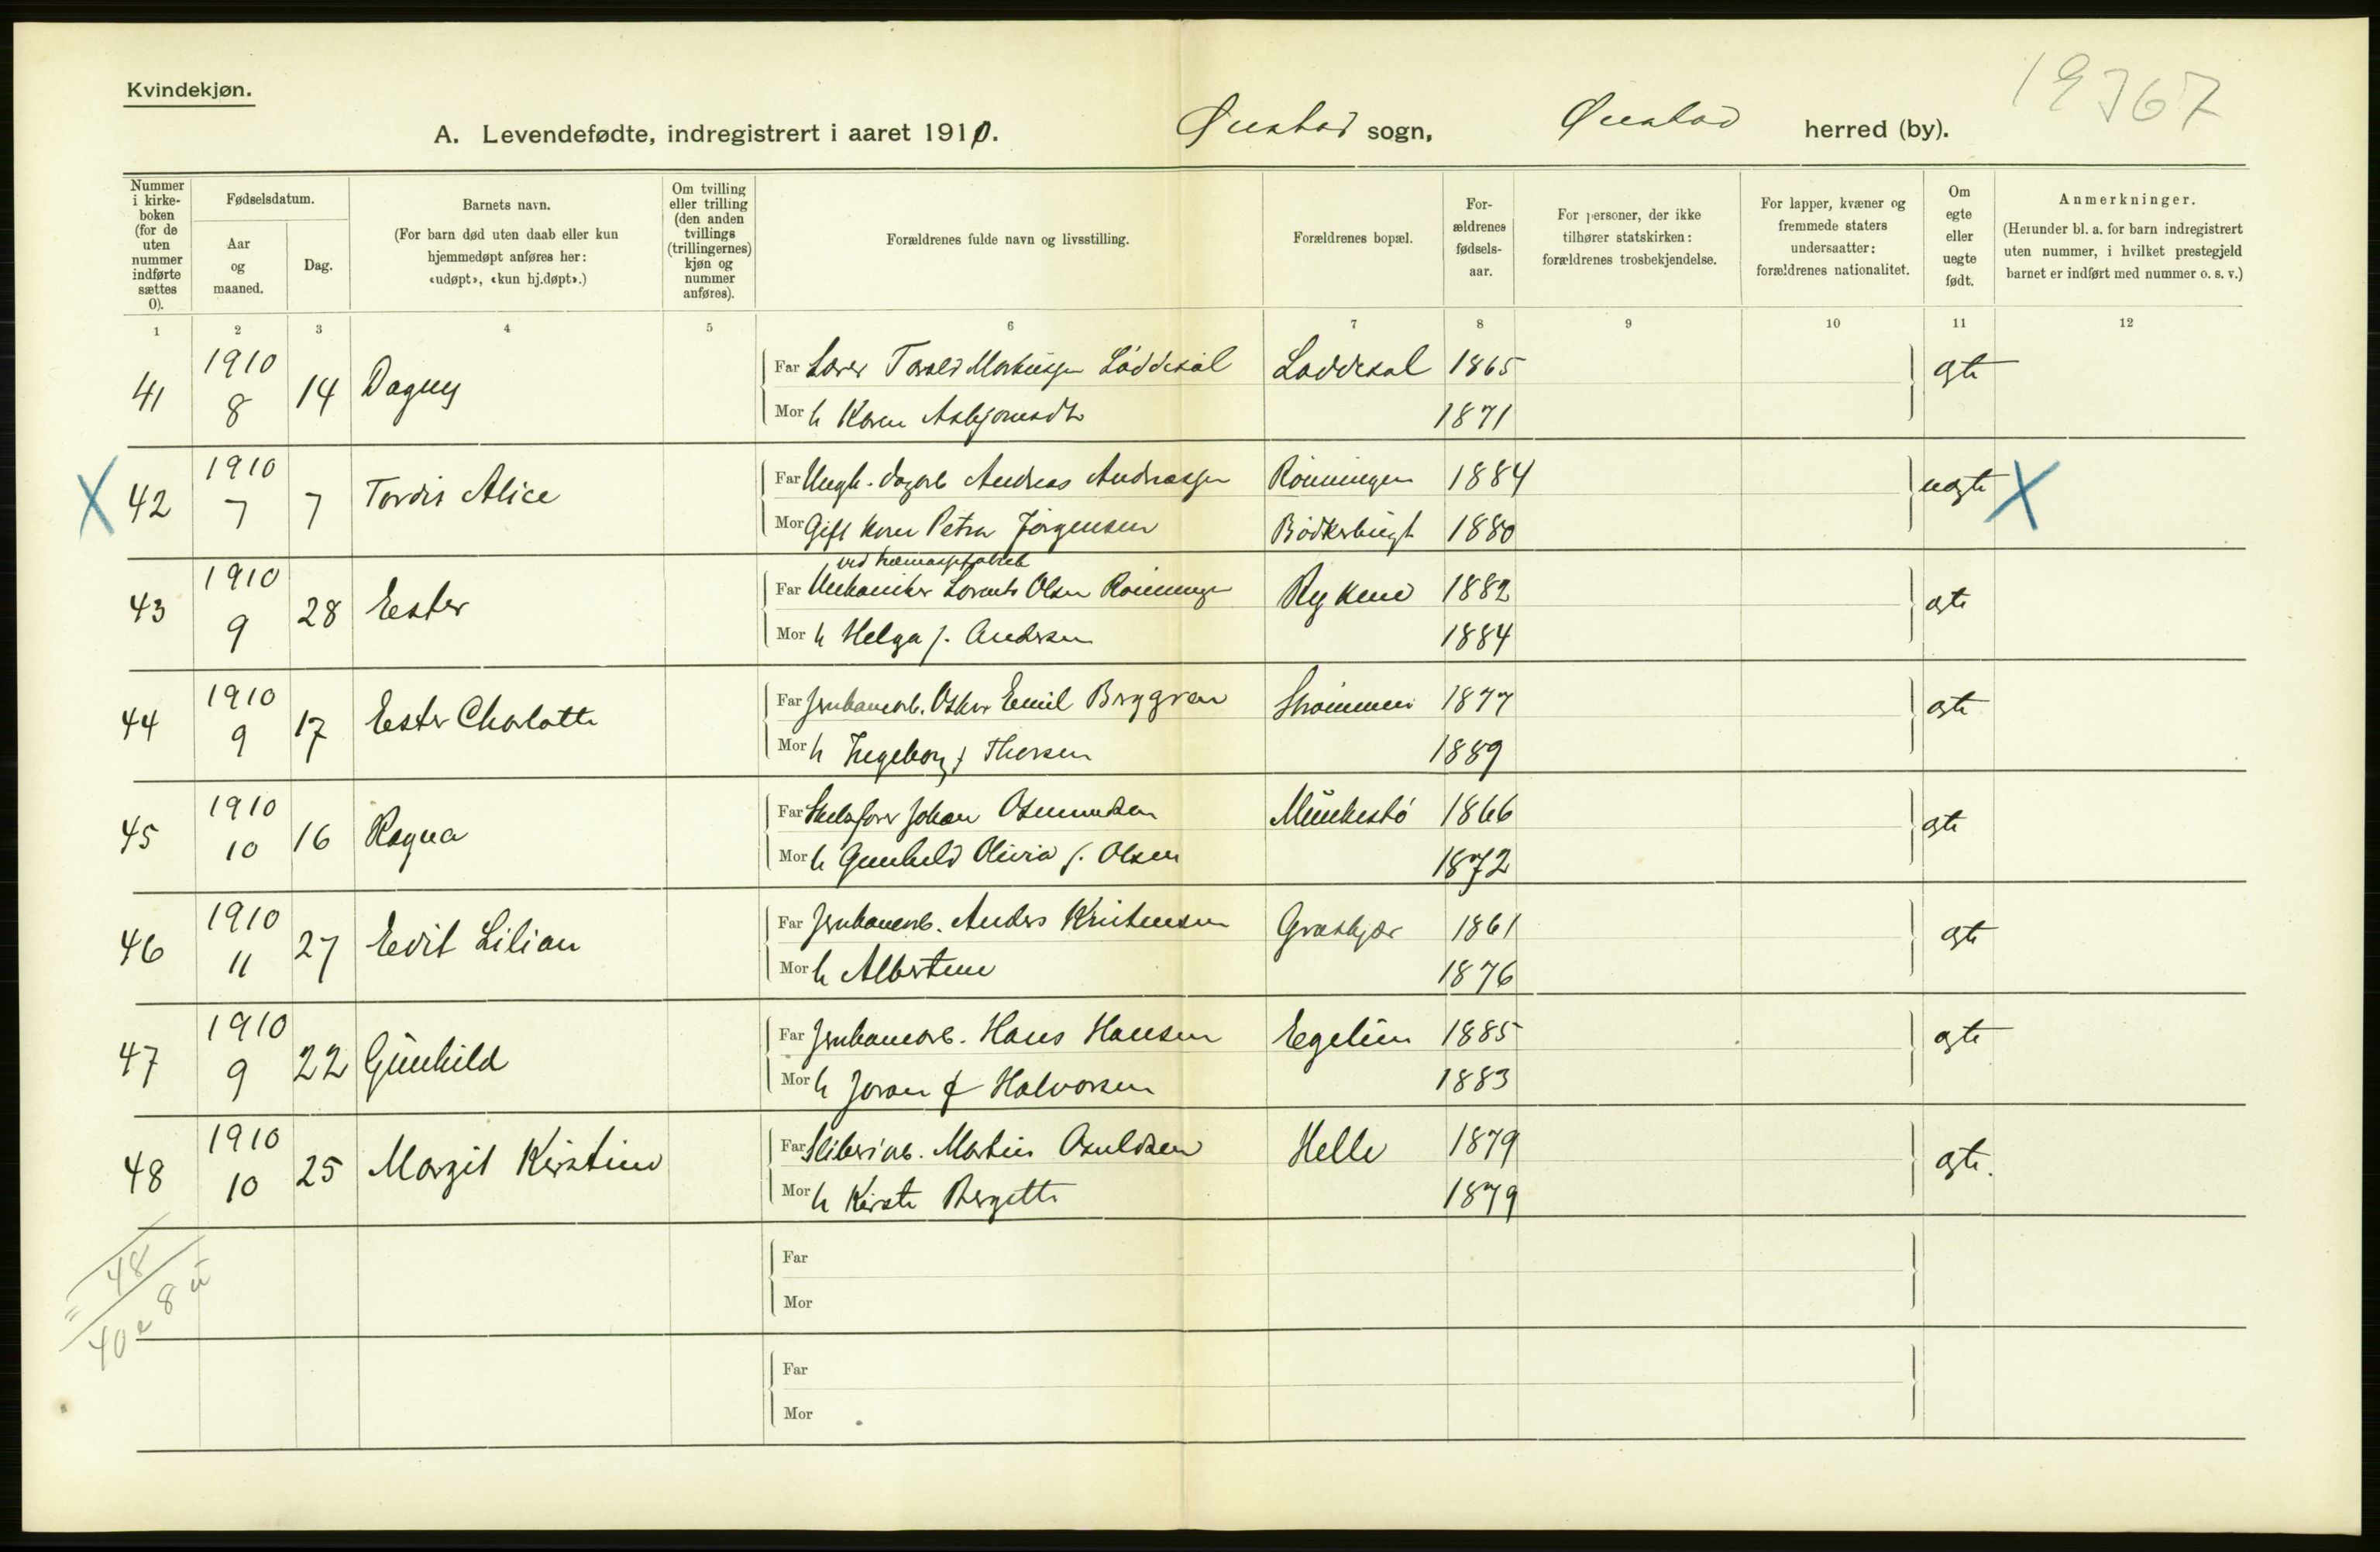 Kvindekjøn.
19367
A. Levendefødte, indregistrert i aaret 1910. Øiestad sogn, Øiestad herred (by).
Nummer i kirke-boken (for de uten nummer indførte sættes 0).
Fødselsdatum.
Aar og maaned.
Dag.
Barnets navn.
(For barn død uten daab eller kun hjemmedøpt anføres her: «udøpt», «kun hj.døpt».)
Om tvilling eller trilling (den anden tvillings (trillingernes) kjøn og nummer anføres).
Forældrenes fulde navn og livsstilling.
Forældrenes bopæl.
For-ældrenes fødsels-aar.
For personer, der ikke tilhører statskirken: forældrenes trosbekjendelse.
For lapper, kvæner og fremmede staters undersaatter: forældrenes nationalitet.
Om egte eller uegte født.
Anmerkninger.
(Herunder bl. a. for barn indregistrert uten nummer, i hvilket prestegjeld barnet er indført med nummer o. s. v.)
1 2 3 4 5 6 7 8 9 10 11 12
41 1910 8 14 Dagny Far Lærer Torald Løddesøl Løddesøl 1865 egte
Mor h Karen Asbjørnsdtr 1871
X 42 1910 7 7 Tordis Alice Far Ungk. dagarb Andreas Andreassen Rønningen 1884 uegte X
Mor Gift kone Petra Jørgensen Bødkerbugt 1880
43 1910 9 28 Ester Far Mekaniker Lorents Olsen Rønninge Rykene 1882 egte
Mor h Helga f. Andersen 1884
44 1910 9 17 Ester Charlotte Far Jernbanearb. Oskar Emil Berggren Strømmen 1877 egte
Mor h Ingeborg f Thorsen 1889
45 1910 10 16 Ragna Far Johan Osmundsen 1866 egte
Mor h Gunhild Olivia f. Olsen 1872
46 1910 11 27 Edit Lilian Far Jernbanearb. Anders Kristensen Græskjær 1861 egte
Mor h Albertine 1876
47 1910 9 22 Gunhild Far Jernbanearb. Hans Hansen Egelim 1885 egte
Mor h Joran f Halvorsen 1883
48 1910 10 25 Margit Kirstine Far Sliberiarb. Martin Osuldsen Helle 1879 egte.
Mor h Kirste Bergette 1879
= 48
40 e 8 u
Far
Mor
Far
Mor